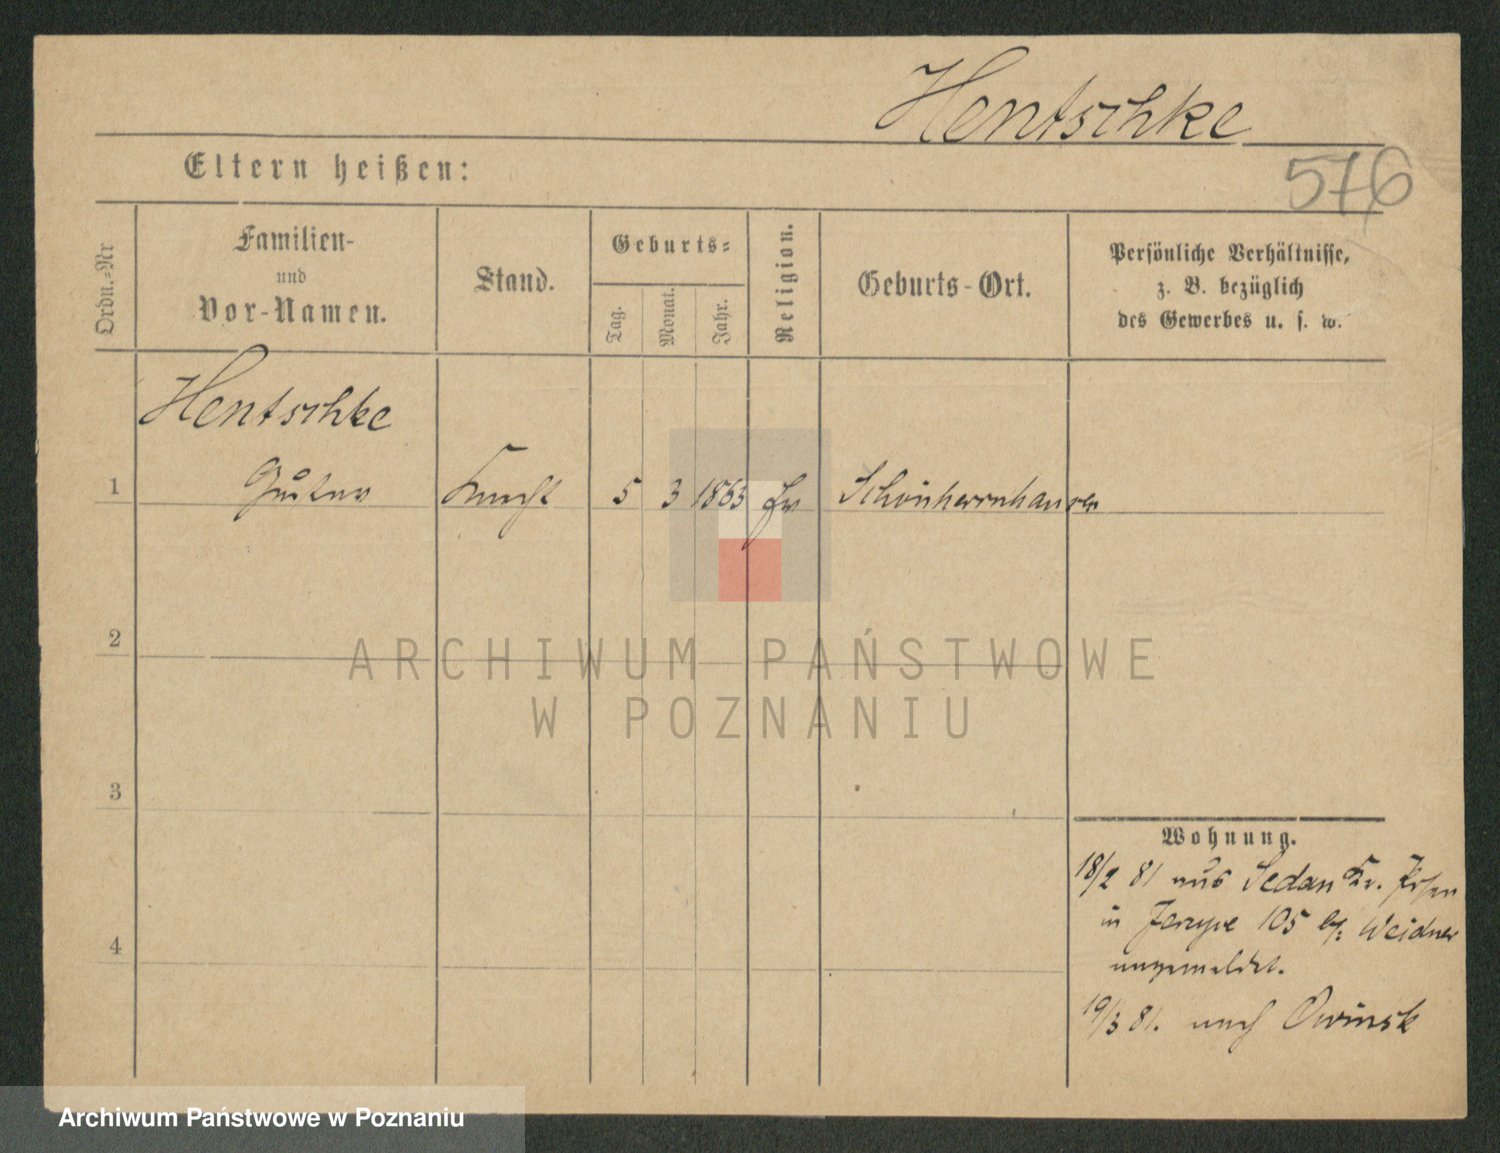 Hentschke
Eltern heißen:
576
Ordn.-Nr
Familien-
und
Vor-Namen.
Stand.
Geburts-
Tag.
Monat.
Jahr.
Religion.
Geburts-Ort.
Persönliche Verhältnisse,
z. B. bezüglich
des Gewerbes u. s. w.
Hentschke
1 Gustav Knecht 5 3 1863 ev Schönherrnhausen
2
ARCHIWUM PAŃSTWOWE
W POZNANIU
3
4
Wohnung.
18/2 81 aus Sedan Kr. Posen
in Jerzyce 105 b/: Weidner
angemeldet.
19/3 81. nach Owinsk
Archiwum Państwowe w Poznaniu